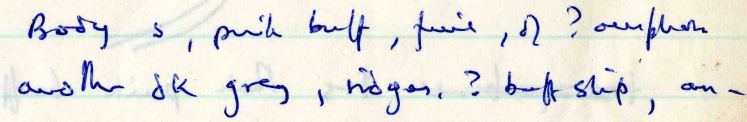 Body s, pink buff, fine, of ? amphora
another dk grey, ridges. ? buff slip, an-